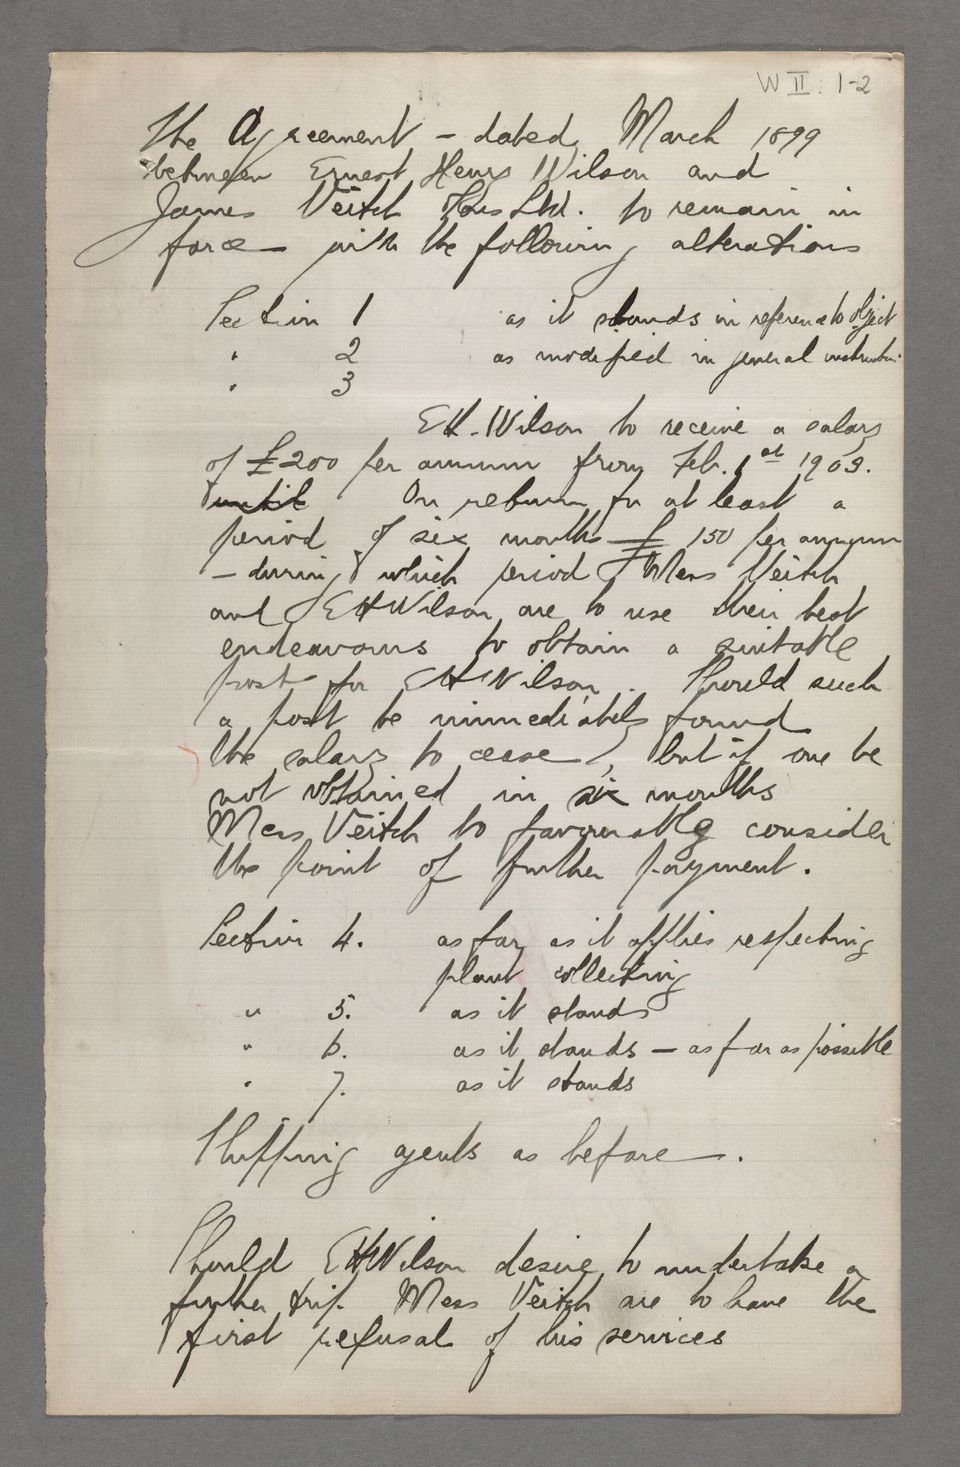 W II. 1-2
The Agreement - dated March 1899
between Ernest Henry Wilson and
James Veitch & Sons Ltd. to remain in
force with the following alterations
Section 1 as it stands in reference to object
" 2 as modified in general instruction
" 3
EH. Wilson to receive a salary
of £200 per annum from Feb. 1st 1903.
until On return for at least a
period of six months £150 per annum
- during which period Mess Veitch
and EHWilson are to use their best
endeavours to obtain a suitable
post for EHWilson. Should such
a post be immediately found
the salary to cease, but if one be
not obtained in six months
Mess Veitch to favourably consider
the point of further payment.
Section 4. as far as it applies respecting
plant collecting
" 5. as it stands
" 6. as it stands - as far as possible
" 7. as it stands
Shipping agents as before.
Should EHWilson desire to undertake a
further trip Mess Veitch are to have the
first refusal of his services